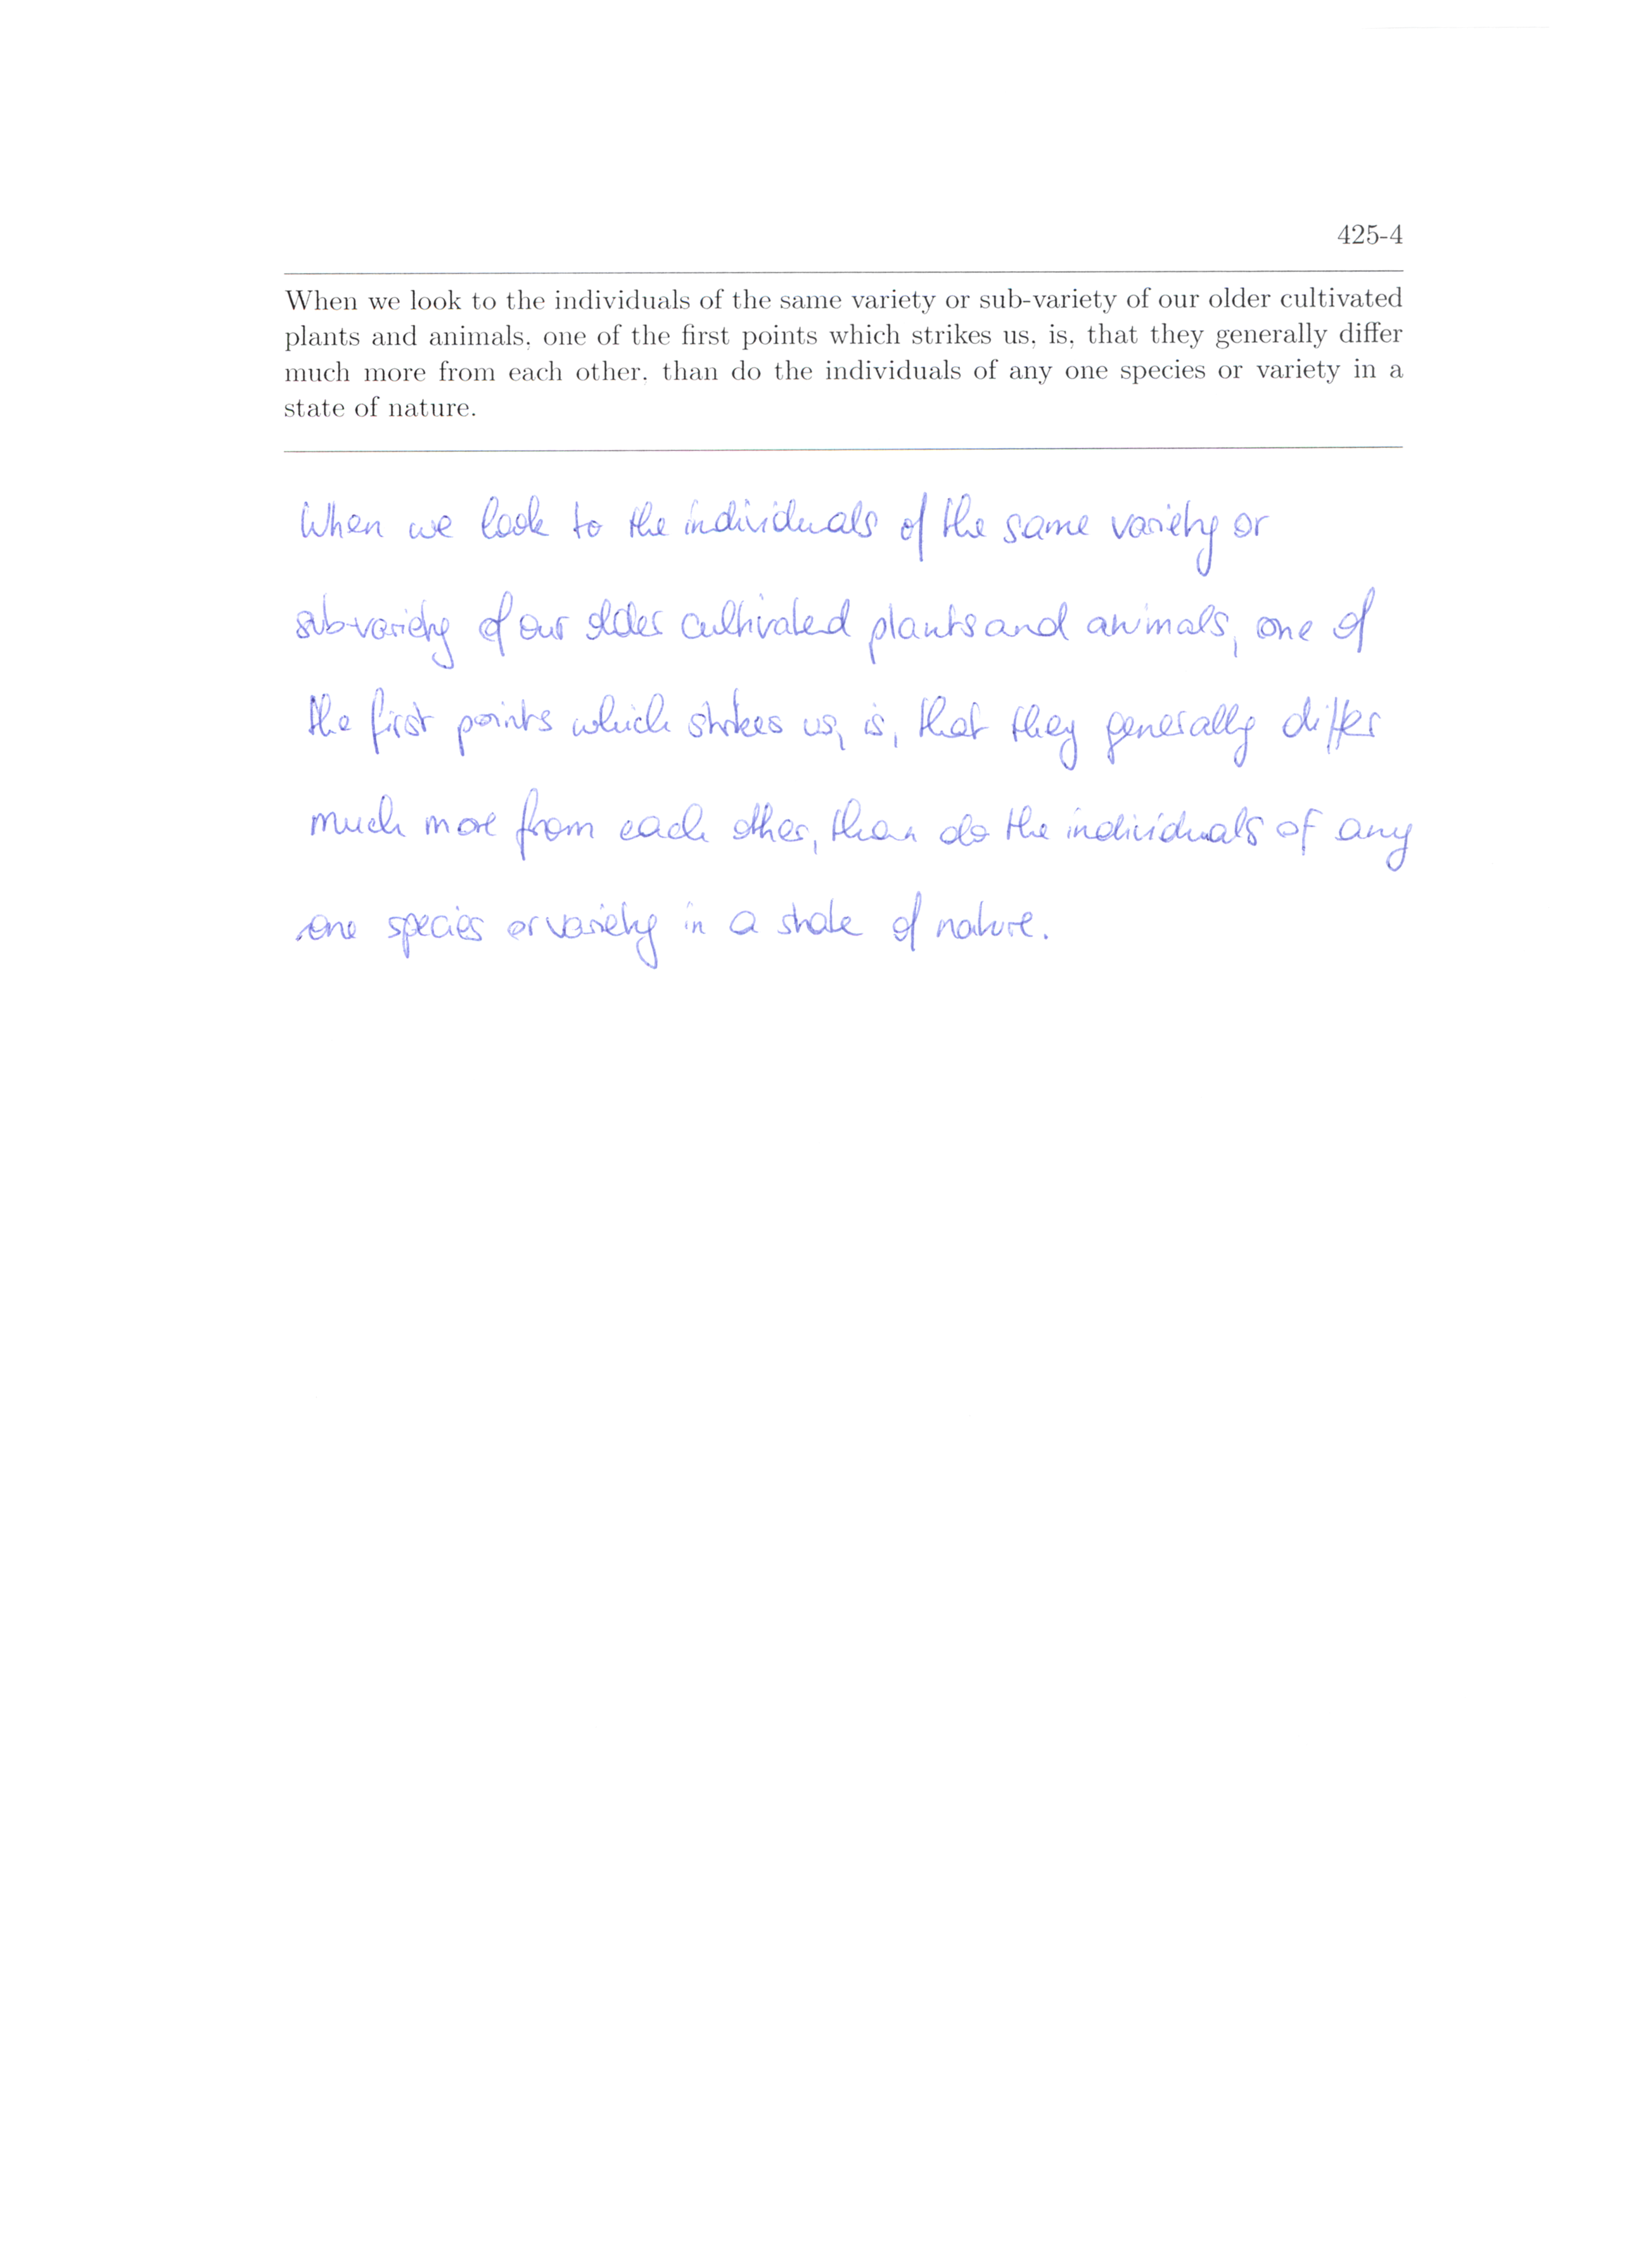 425-4
When we look to the individuals of the same variety or sub-variety of our older cultivated
plants and animals, one of the first points which strikes us, is, that they generally differ
much more from each other, than do the individuals of any one species or variety in a
state of nature.
When we look to the individuals of the same variety or
sub-variety of our older cultivated plants and animals, one of
the first points which strikes us, is, that they generally differ
much more from each other, than do the individuals of any
one species or variety in a state of nature.